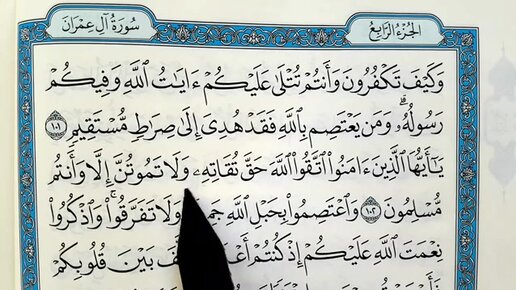 الجُزْءُ الرَّابِعُ
سُورَةُ آلِ عِمْرَانَ
وَكَيْفَ تَكْفُرُونَ وَأَنتُمْ تُتْلَىٰ عَلَيْكُمْ ءَايَٰتُ ٱللَّهِ وَفِيكُمْ
رَسُولُهُۥۗ وَمَن يَعْتَصِم بِٱللَّهِ فَقَدْ هُدِىَ إِلَىٰ صِرَٰطٍ مُّسْتَقِيمٍ ١٠١
يَٰٓأَيُّهَا ٱلَّذِينَ ءَامَنُوا۟ ٱتَّقُوا۟ ٱللَّهَ حَقَّ تُقَاتِهِۦ وَلَا تَمُوتُنَّ إِلَّا وَأَنتُم
مُّسْلِمُونَ ١٠٢ وَٱعْتَصِمُوا۟ بِحَبْلِ ٱللَّهِ وَلَا تَفَرَّقُوا۟ۚ وَٱذْكُرُوا۟
نِعْمَتَ ٱللَّهِ عَلَيْكُمْ إِذْ كُنتُمْ بَيْنَ قُلُوبِكُمْ